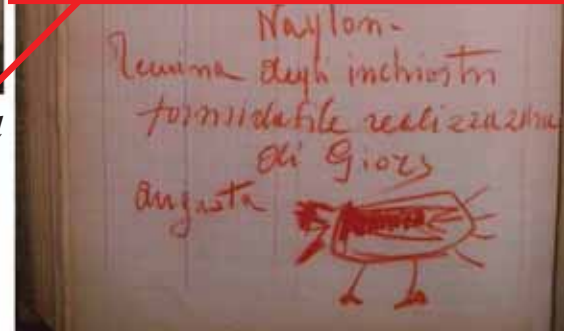 Naylon-
degli inchiostri
formidabile realizzazione
di Giors
augusta